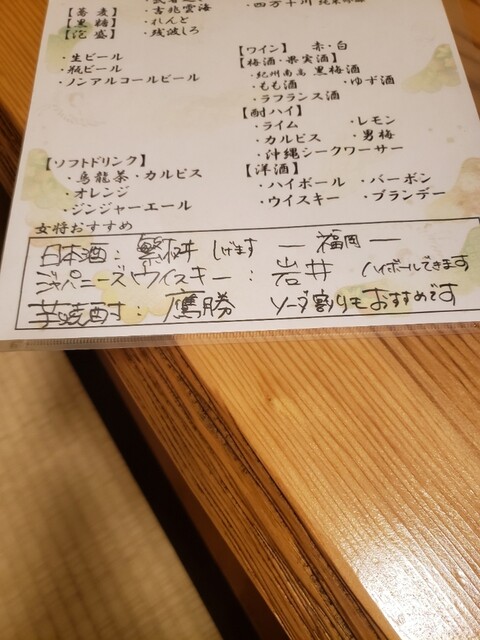 【蕎麦】 ・古兆雲海
・四万十川
【黒糖】 ・れんと
【泡盛】 ・残波しろ
・生ビール
・瓶ビール
・ノンアルコールビール
【ワイン】 赤・白
【梅酒・果実酒】
・紀州南高 黒梅酒
・もも酒 ・ゆず酒
・ラフランス酒
【酎ハイ】
・ライム ・レモン
・カルピス ・男梅
・沖縄シークワーサー
【ソフトドリンク】
・烏龍茶・カルピス
・オレンジ
・ジンジャーエール
【洋酒】
・ハイボール ・バーボン
・ウイスキー ・ブランデー
女将おすすめ
日本酒: 繁桝 しげます ー福岡ー
ジャパニーズウイスキー: 岩井 ハイボールできます
芋焼酎: 鷹勝 ソーダ割りもおすすめです